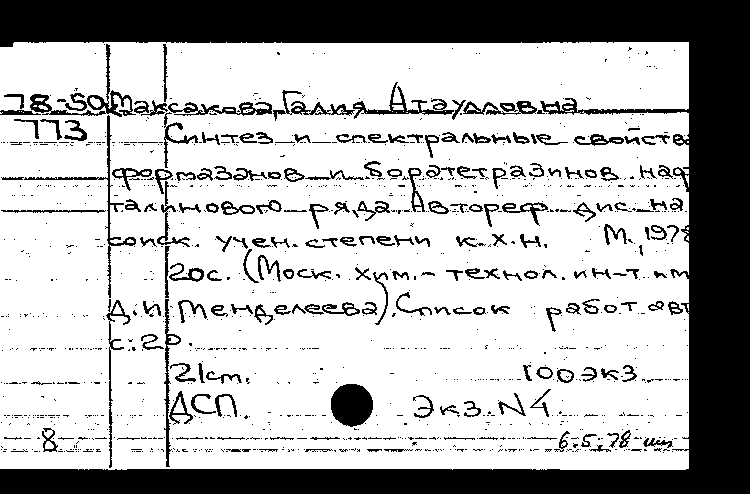 78-50 Максакова, Галия Атаулловна
773 Синтез и спектральные свойства
формазанов и боратетразинов наф
талинового ряда. Автореф. дис. на
соиск. учен. степени к.х.н. М., 1978
20с. (Моск. хим.- технол. ин-т им
Д.И. Менделеева). Список работ авт
с. 20.
21см. 100 экз.
ДСП. Экз. N4.
8 6.5.78